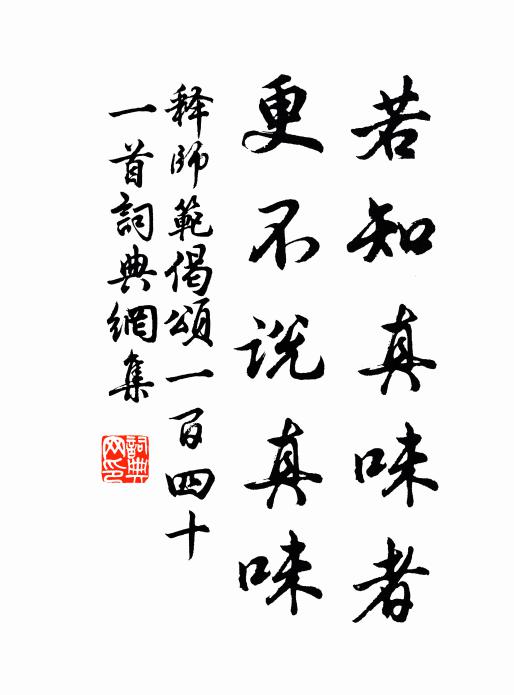 若知真味者
更不说真味
释師範偈頌一百四十
一首詞典網集
詞典
网印